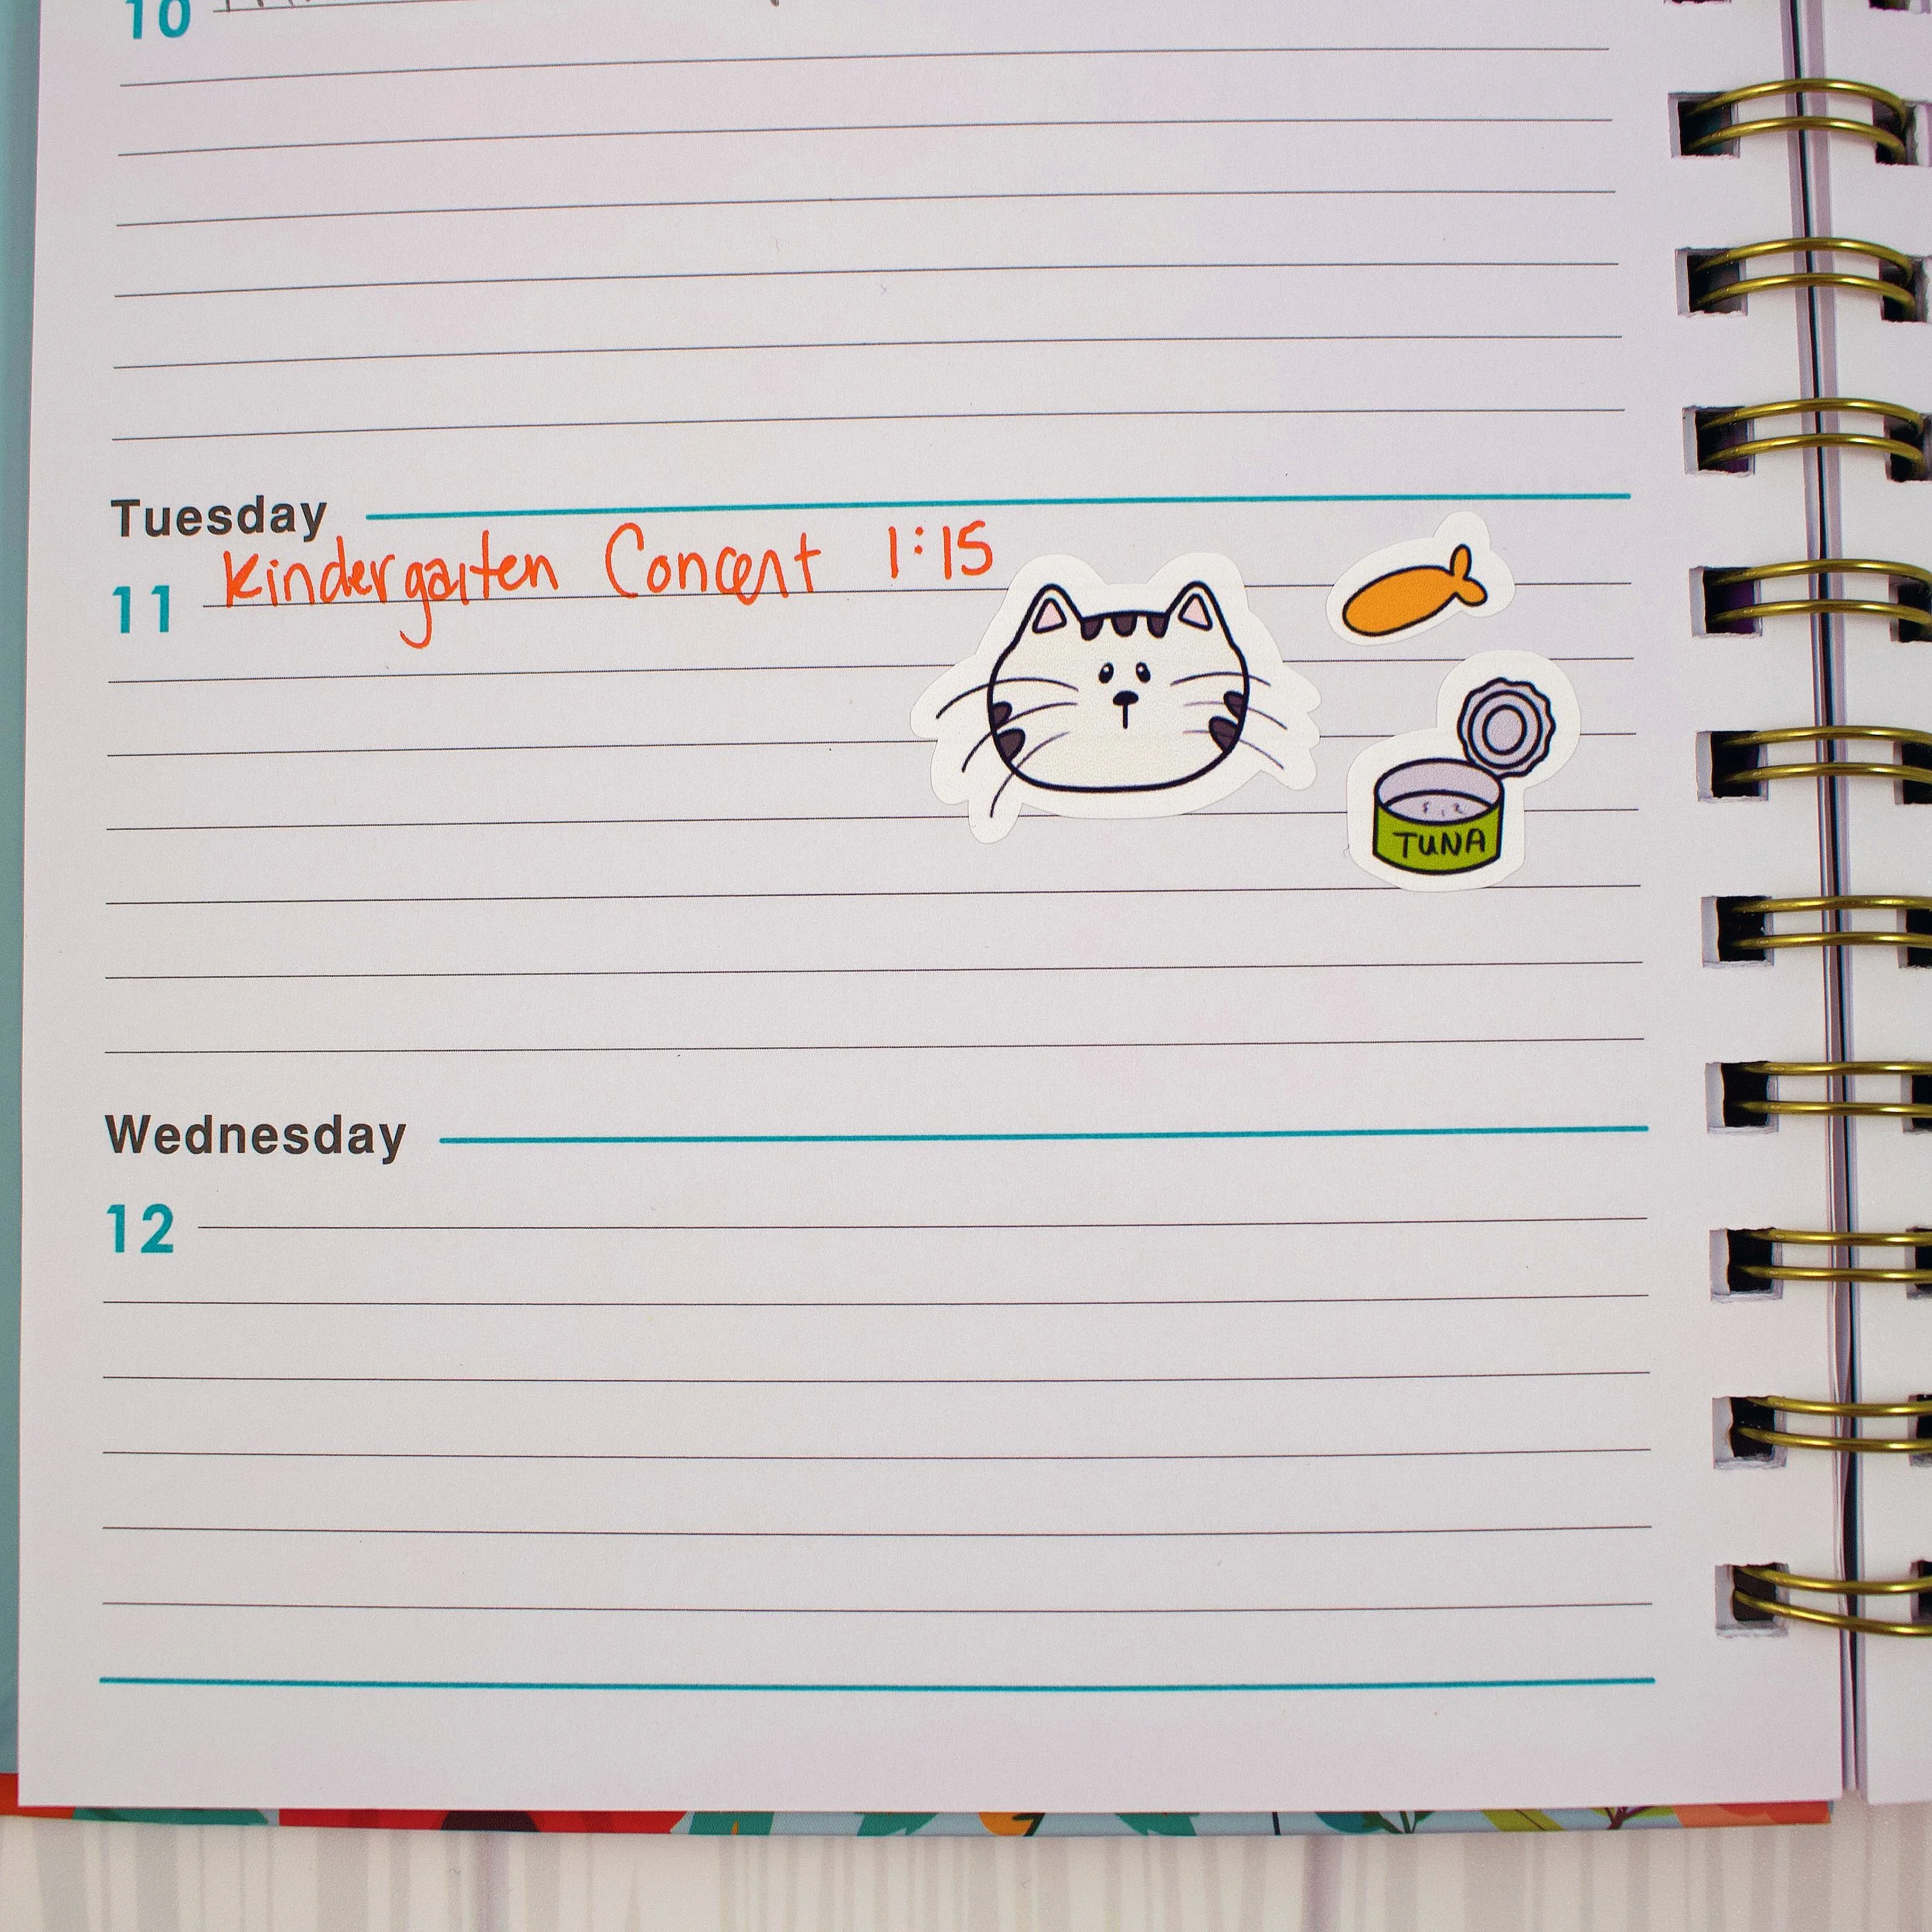 10
Tuesday
Kindergarten Concert 1:15
11
TUNA
Wednesday
12